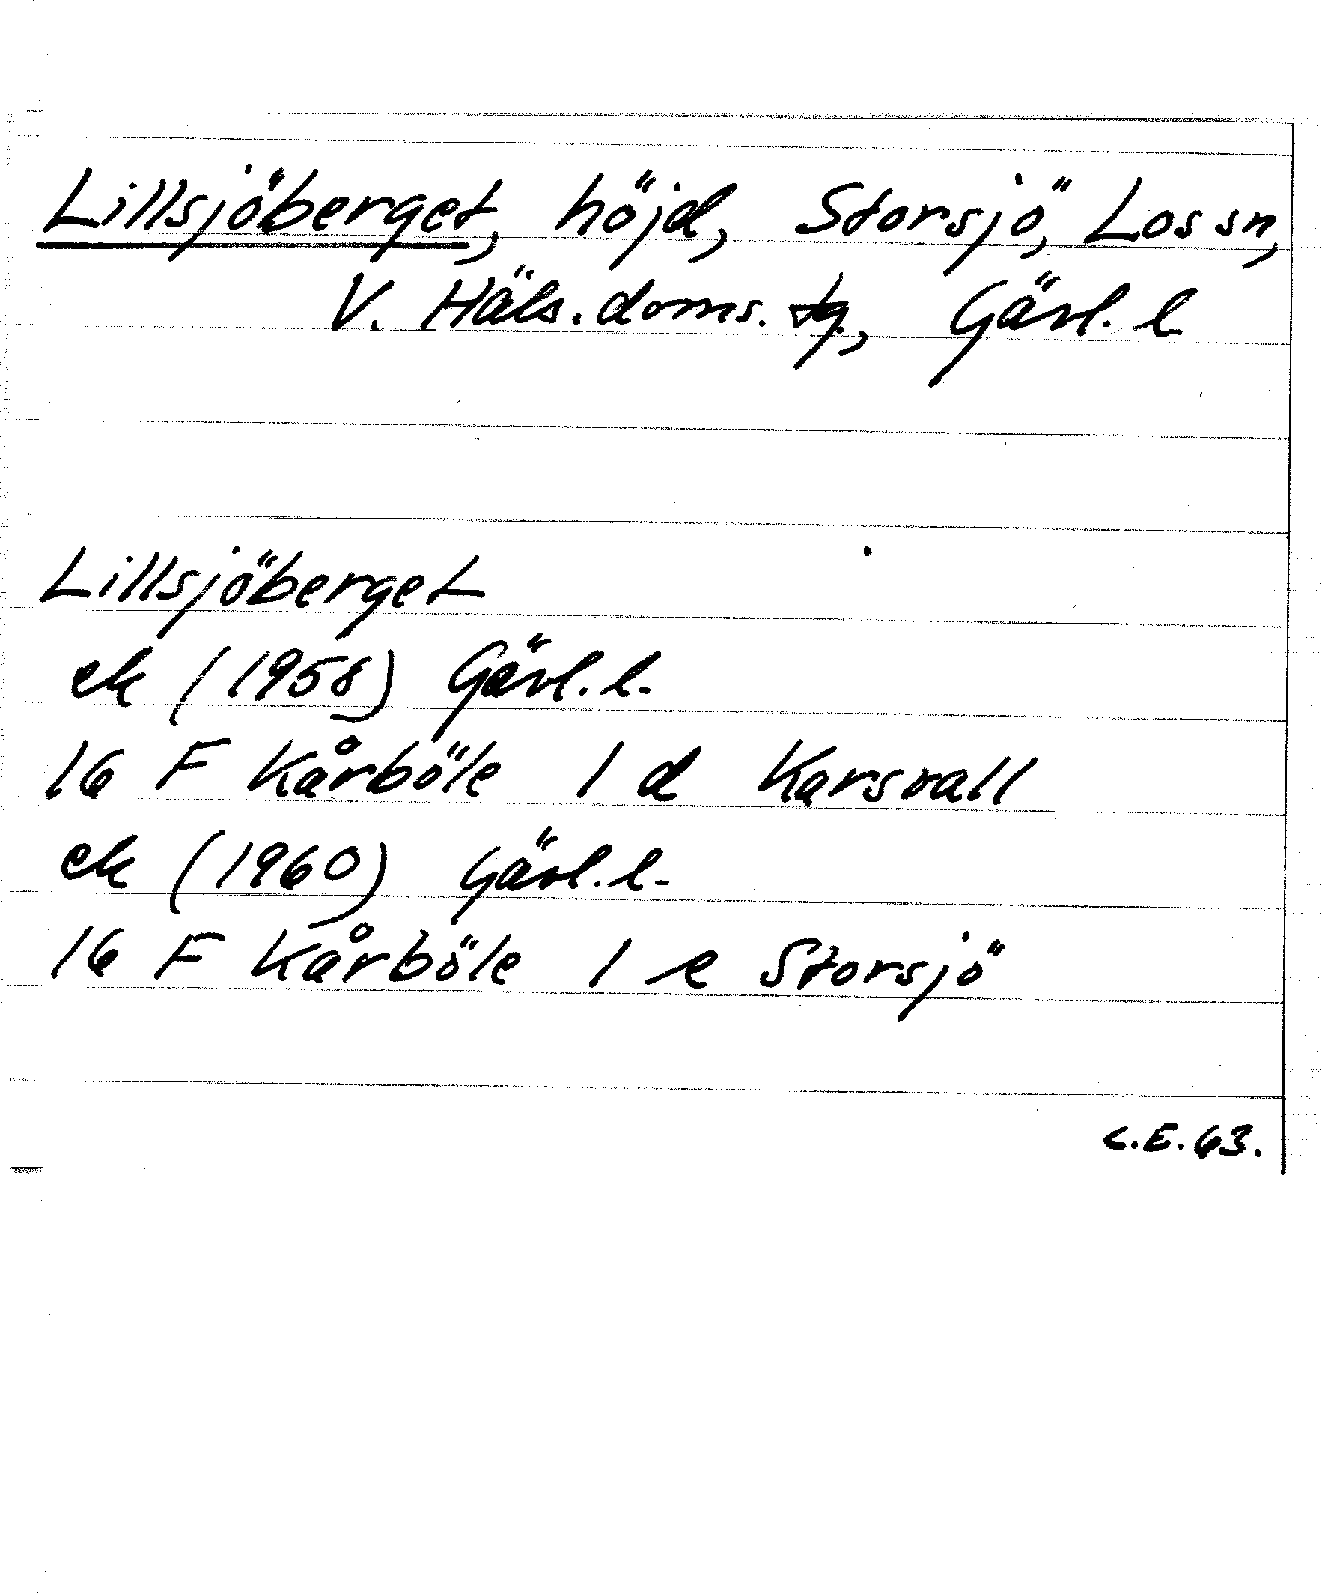 Lillsjöberget, höjd, Storsjö, Los sn,
V. Häls. doms. tg, Gävl. l
Lillsjöberget
ek (1958) Gävl. l.
16 F Kårböle 1 d Karsvall
ek (1960) Gävl. l.
16 F Kårböle 1 e Storsjö
C.E. 63.